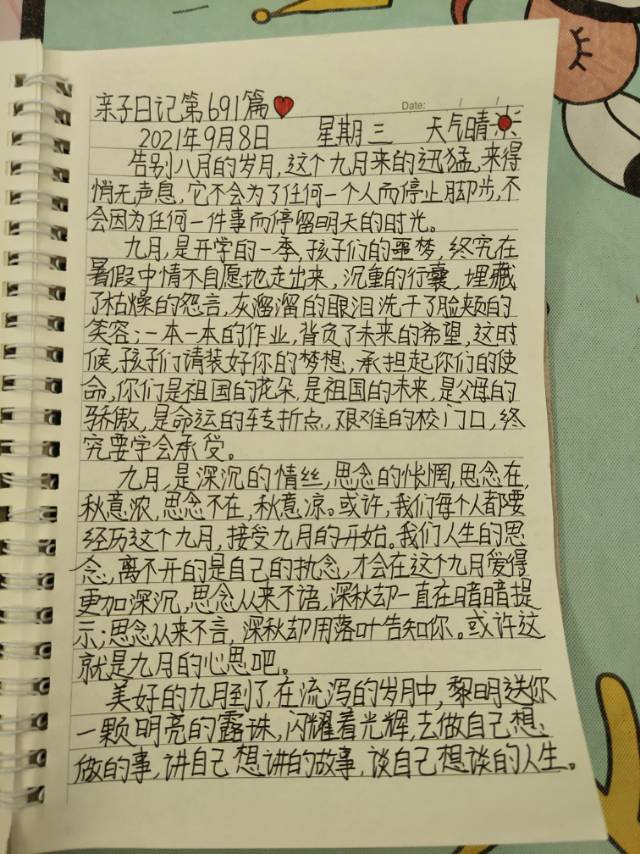 亲子日记第691篇
Date: / /
2021年9月8日 星期三 天气晴
告别八月的岁月,这个九月来的迅猛,来得
悄无声息,它不会为了任何一个人而停止脚步,不
会因为任何一件事而停留明天的时光。
九月,是开学的一季,孩子们的噩梦,终究在
暑假中情不自愿地走出来,沉重的行囊,埋藏
了枯燥的怨言,灰溜溜的眼泪洗干了脸颊的
笑容;一本一本的作业,背负了未来的希望,这时
候,孩子们请装好你的梦想,承担起你们的使
命,你们是祖国的花朵,是祖国的未来,是父母的
骄傲,是命运的转折点,艰难的校门口,终
究要学会承受。
九月,是深沉的情丝,思念的怅惘,思念在,
秋意浓,思念不在,秋意凉。或许,我们每个人都要
经历这个九月,接受九月的开始。我们人生的思
念,离不开的是自己的执念,才会在这个九月爱得
更加深沉,思念从来不语,深秋却一直在暗暗提
示;思念从来不言,深秋却用落叶告知你。或许这
就是九月的心思吧。
美好的九月到了,在流泻的岁月中,黎明送你
一颗明亮的露珠,闪耀着光辉,去做自己想
做的事,讲自己想讲的故事,谈自己想谈的人生。